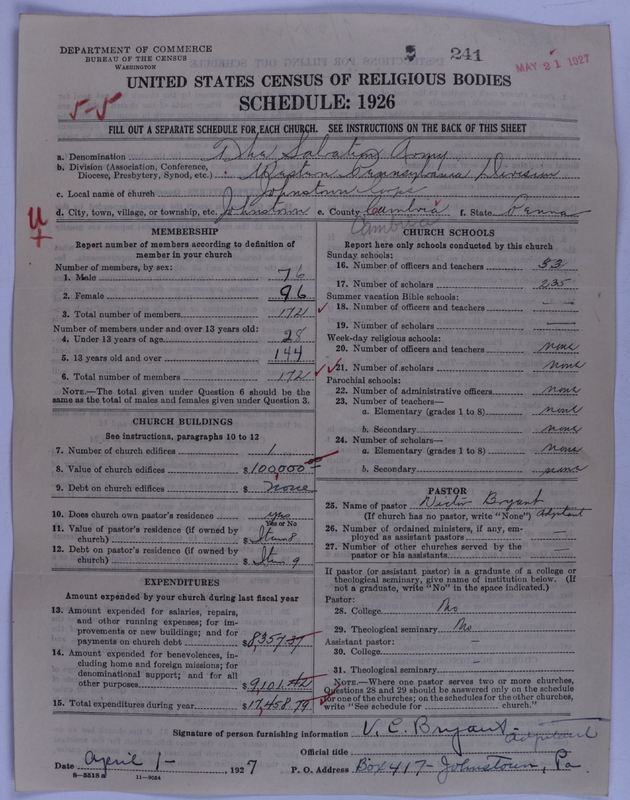 DEPARTMENT OF COMMERCE
BUREAU OF THE CENSUS
WASHINGTON
241
MAY 21 1927
UNITED STATES CENSUS OF RELIGIOUS BODIES
SCHEDULE: 1926
5-5
FILL OUT A SEPARATE SCHEDULE FOR EACH CHURCH. SEE INSTRUCTIONS ON THE BACK OF THIS SHEET
a. Denomination The Salvation Army
b. Division (Association, Conference, Diocese, Presbytery, Synod, etc.) Western Pennsylvania Division
c. Local name of church Johnstown Corps
d. City, town, village, or township, etc. Johnstown e. County Cambria f. State Penna
Cambria
U
MEMBERSHIP
Report number of members according to definition of
member in your church
Number of members, by sex:
1. Male 76
2. Female 96
3. Total number of members 172
Number of members under and over 13 years old:
4. Under 13 years of age 28
5. 13 years old and over 144
6. Total number of members 172
NOTE.—The total given under Question 6 should be the
same as the total of males and females given under Question 3.
CHURCH BUILDINGS
See instructions, paragraphs 10 to 12
7. Number of church edifices 1
8. Value of church edifices $100,000
9. Debt on church edifices $ none
10. Does church own pastor's residence? yes
Yes or No
11. Value of pastor's residence (if owned by
church) $ Item 8
12. Debt on pastor's residence (if owned by
church) $ Item 9
EXPENDITURES
Amount expended by your church during last fiscal year
13. Amount expended for salaries, repairs,
and other running expenses; for im-
provements or new buildings; and for
payments on church debt $8,357.37
14. Amount expended for benevolences, in-
cluding home and foreign missions; for
denominational support; and for all
other purposes $9,101.42
15. Total expenditures during year $17,458.79
CHURCH SCHOOLS
Report here only schools conducted by this church
Sunday schools:
16. Number of officers and teachers 33
17. Number of scholars 235
Summer vacation Bible schools:
18. Number of officers and teachers —
19. Number of scholars —
Week-day religious schools:
20. Number of officers and teachers none
21. Number of scholars none
Parochial schools:
22. Number of administrative officers none
23. Number of teachers—
a. Elementary (grades 1 to 8) none
b. Secondary none
24. Number of scholars—
a. Elementary (grades 1 to 8) none
b. Secondary none
PASTOR
25. Name of pastor Victor Bryant
(If church has no pastor, write "None") Adjutant
26. Number of ordained ministers, if any, em-
ployed as assistant pastors —
27. Number of other churches served by the
pastor or his assistants —
If pastor (or assistant pastor) is a graduate of a college or
theological seminary, give name of institution below. (If
not a graduate, write "No" in the space indicated.)
Pastor:
28. College No
29. Theological seminary No
Assistant pastor:
30. College —
31. Theological seminary —
NOTE.—Where one pastor serves two or more churches,
Questions 28 and 29 should be answered only on the schedule
for one of the churches; on the schedules for the other churches,
write "See schedule for church."
Signature of person furnishing information V. C. Bryant - Adjutant
Official title
Date April 1-, 1927 P. O. Address Box 417 - Johnstown, Pa
8-5518a 11-9054